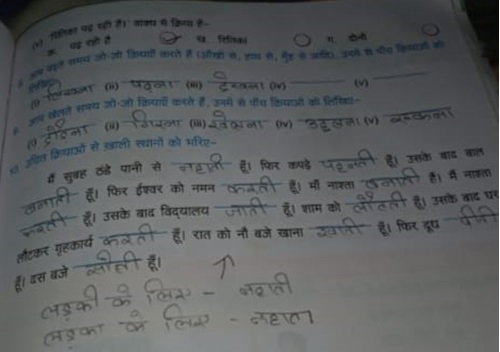 (v) रितिका पढ़ रही है। वाक्य में क्रिया है–
क. पढ़ रही है ख. रितिका ग. दोनों
8. आप पढ़ते समय जो-जो क्रियाएँ करते हैं (आँखों से, हाथ से, मुँह से आदि), उनमें से पाँच क्रियाओं को
लिखिए–
(i) लिखना (ii) पढ़ना (iii) देखना (iv) (v)
9. आप खेलते समय जो-जो क्रियाएँ करते हैं, उनमें से पाँच क्रियाओं को लिखिए–
(i) दौड़ना (ii) गिरना (iii) खेलना (iv) (v)
10. उचित क्रियाओं से खाली स्थानों को भरिए–
मैं सुबह ठंडे पानी से नहाती हूँ। फिर कपड़े पहनती हूँ। उसके बाद बाल
बनाती हूँ। फिर ईश्वर को नमन करती हूँ। माँ नाश्ता बनाती है। मैं नाश्ता
करती हूँ। उसके बाद विद्यालय जाती हूँ। शाम को लौटती हूँ। उसके बाद घर
लौटकर गृहकार्य करती हूँ। रात को नौ बजे खाना खाती हूँ। फिर दूध पीती
हूँ। दस बजे सोती हूँ।
लड़की के लिए - नहाती
लड़का के लिए - नहाता